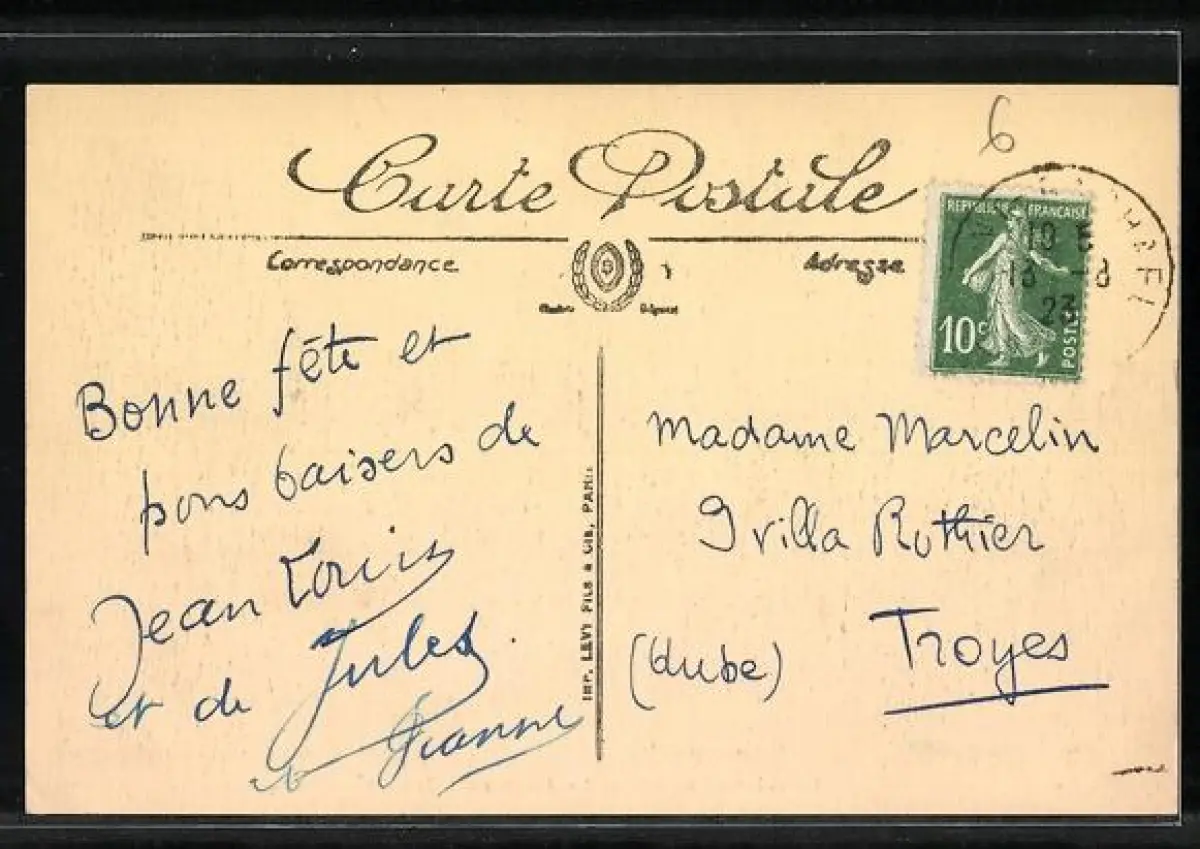 6
Carte Postale
Correspondance
Adresse
REPUBLIQUE FRANÇAISE
10c
POSTES
10 5
13 -8
23
Bonne fête et
bons baisers de
Jean Louis
et de Jules
et Jeanne
IMP. LEVY FILS & Cie, PARIS
Madame Marcelin
9 villa Rothier
Troyes
(Aube)